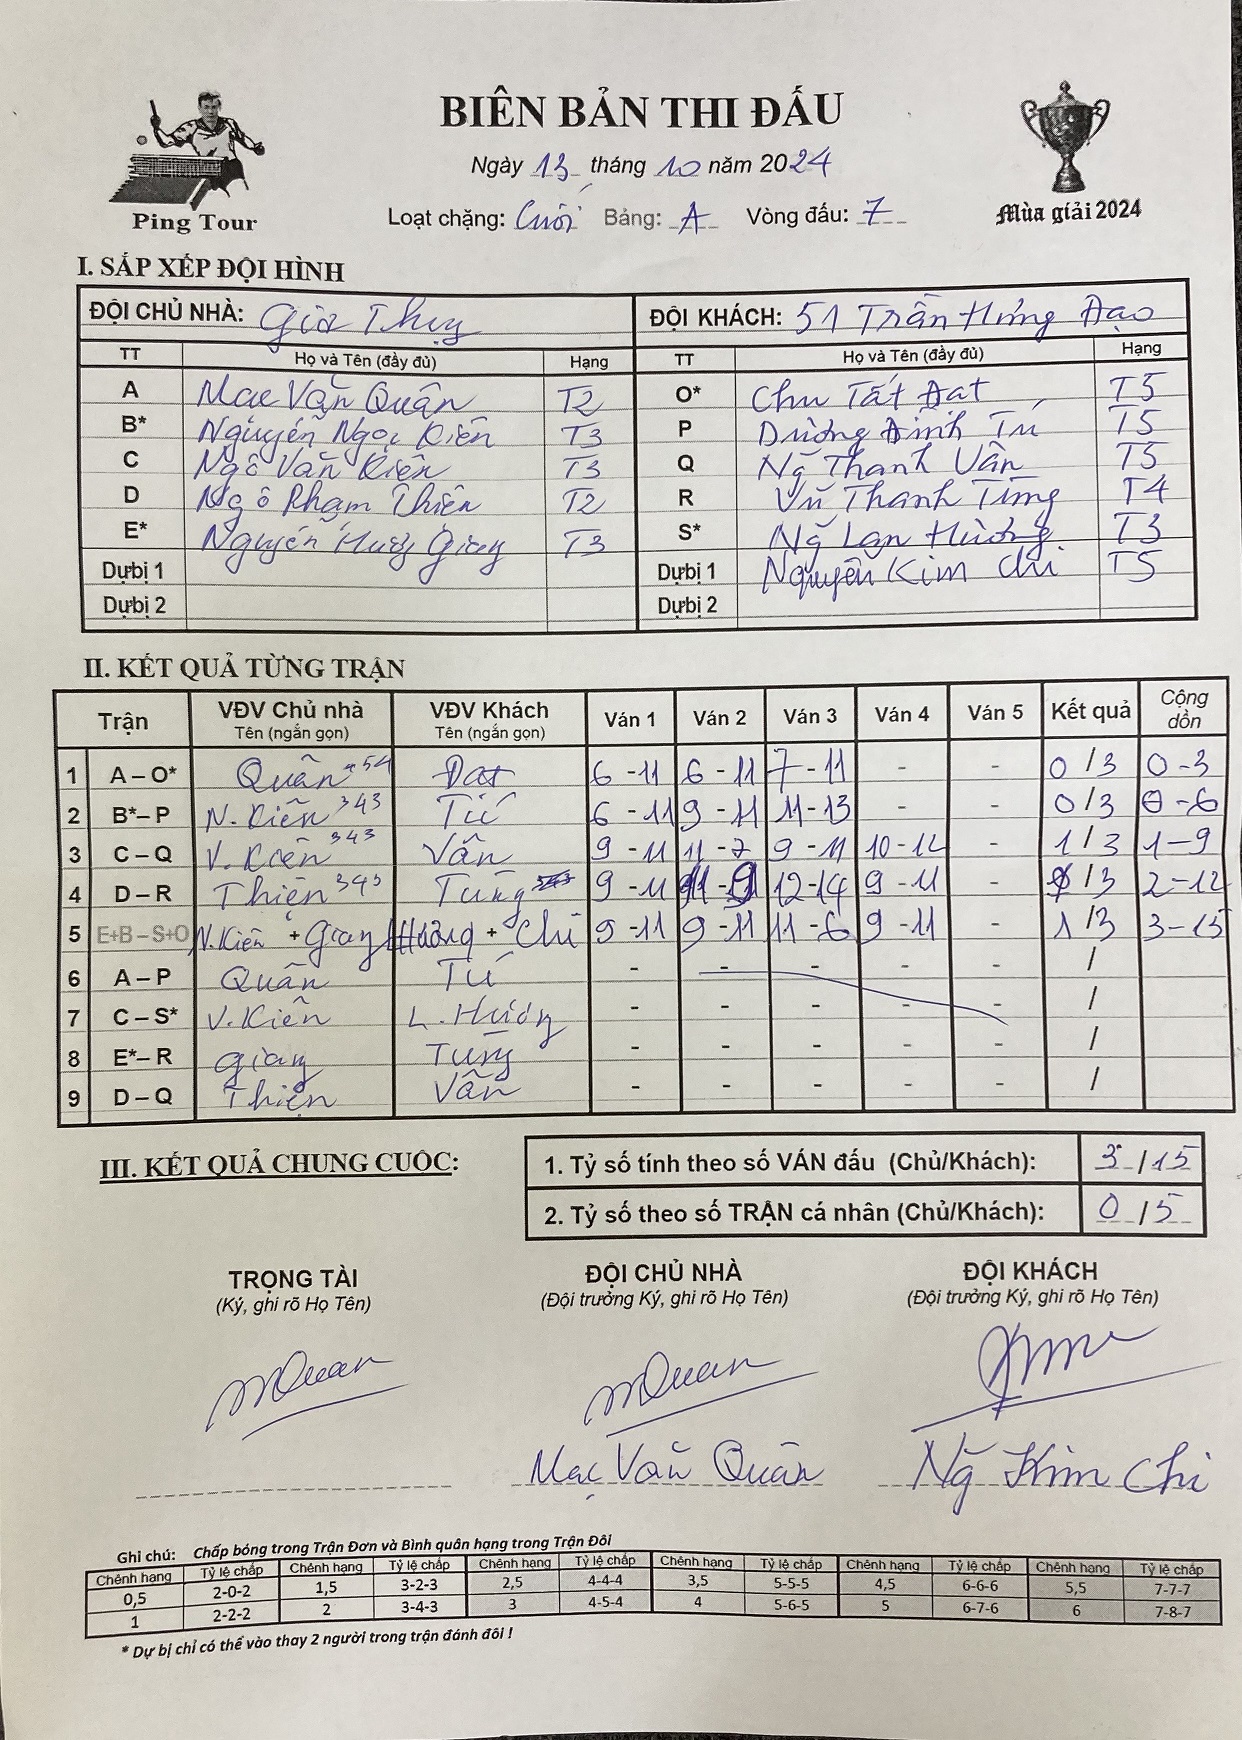 BIÊN BẢN THI ĐẤU
Ping Tour
Mùa giải 2024
Ngày 13 tháng 10 năm 2024
Loạt chặng: Cuối Bảng: A Vòng đấu: 7
I. SẮP XẾP ĐỘI HÌNH
ĐỘI CHỦ NHÀ: Gia Thụy ĐỘI KHÁCH: 51 Trần Hưng Đạo
TT Họ và Tên (đầy đủ) Hạng TT Họ và Tên (đầy đủ) Hạng
A Mạc Văn Quân T2 O* Chu Tất Đạt T5
B* Nguyễn Ngọc Kiên T3 P Dương Đình Tú T5
C Ngô Văn Kiên T3 Q Ng̃ Thanh Vân T5
D Ngô Phạm Thiện T2 R Vũ Thanh Tùng T4
E* Nguyễn Hương Giang T3 S* Ng̃ Lan Hương T3
Dự bị 1 Dự bị 1 Nguyễn Kim Chi T5
Dự bị 2 Dự bị 2
II. KẾT QUẢ TỪNG TRẬN
Trận VĐV Chủ nhà Tên (ngắn gọn) VĐV Khách Tên (ngắn gọn) Ván 1 Ván 2 Ván 3 Ván 4 Ván 5 Kết quả Cộng dồn
1 A – O* Quân Đạt 6 - 11 6 - 11 7 - 11 - - 0 / 3 0 - 3
2 B* – P N. Kiên 343 Tú 6 - 11 9 - 11 11 - 13 - - 0 / 3 0 - 6
3 C – Q V. Kiên 343 Vân 9 - 11 11 - 7 9 - 11 10 - 12 - 1 / 3 1 - 9
4 D – R Thiện 343 Tùng 9 - 11 11 - 9 12 - 14 9 - 11 - 1 / 3 2 - 12
5 E+B – S+O N. Kiên + Giang Hương + Chi 9 - 11 9 - 11 11 - 6 9 - 11 - 1 / 3 3 - 15
6 A – P Quân Tú - - - - - /
7 C – S* V. Kiên L. Hương - - - - - /
8 E* – R Giang Tùng - - - - - /
9 D – Q Thiện Vân - - - - - /
III. KẾT QUẢ CHUNG CUỘC:
1. Tỷ số tính theo số VÁN đấu (Chủ/Khách): 3 / 15
2. Tỷ số theo số TRẬN cá nhân (Chủ/Khách): 0 / 5
TRỌNG TÀI ĐỘI CHỦ NHÀ ĐỘI KHÁCH
(Ký, ghi rõ Họ Tên) (Đội trưởng Ký, ghi rõ Họ Tên) (Đội trưởng Ký, ghi rõ Họ Tên)
mQuan mQuan
Mạc Văn Quân Ng̃ Kim Chi
Ghi chú: Chấp bóng trong Trận Đơn và Bình quân hạng trong Trận Đôi
Chênh hạng Tỷ lệ chấp Chênh hạng Tỷ lệ chấp Chênh hạng Tỷ lệ chấp Chênh hạng Tỷ lệ chấp Chênh hạng Tỷ lệ chấp Chênh hạng Tỷ lệ chấp
0,5 2-0-2 1,5 3-2-3 2,5 4-4-4 3,5 5-5-5 4,5 6-6-6 5,5 7-7-7
1 2-2-2 2 3-4-3 3 4-5-4 4 5-6-5 5 6-7-6 6 7-8-7
* Dự bị chỉ có thể vào thay 2 người trong trận đánh đôi !